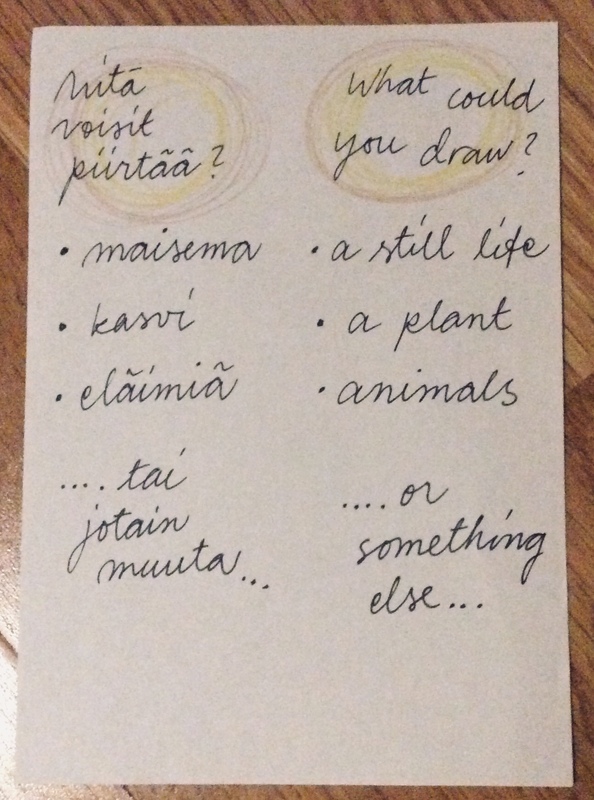 Mitä
voisit
piirtää?
• maisema
• kasvi
• eläimiä
.... tai
jotain
muuta...
What could
you draw?
• a still life
• a plant
• animals
.... or
something
else...